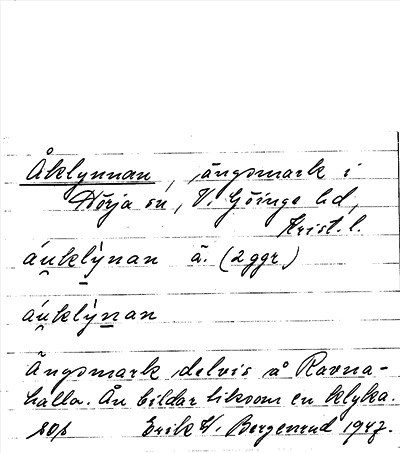 Åklynnan, ängsmark i
Hörja sn, V. Göinge hd,
Krist. l.
áuklỳnan ä. (2 ggr)
áuklỳnan
Ängsmark delvis å Ravna-
halla. Ån bildar liksom en klyka.
Erik W. Bergenrud 1947.